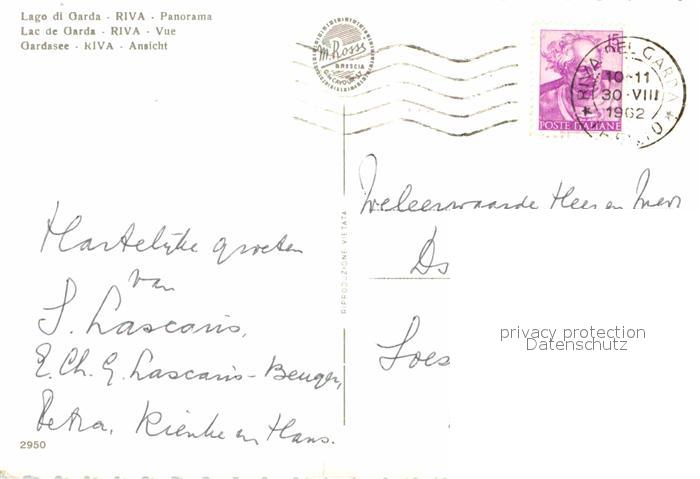 Lago di Garda - RIVA - Panorama
Lac de Garda - RIVA - Vue
Gardasee - RIVA - Ansicht
M. Rossi
BRESCIA
15
POSTE ITALIANE
RIVA DEL GARDA
10-11
30·VIII
1962
Weleerwaarde Heer en Mevr
Ds
Hartelijke groeten
van
S. Lascaris,
E. Ch. G. Lascaris-Beuger,
Petra, Rienke en Hans.
RIPRODUZIONE VIETATA
privacy protection
Datenschutz
2950